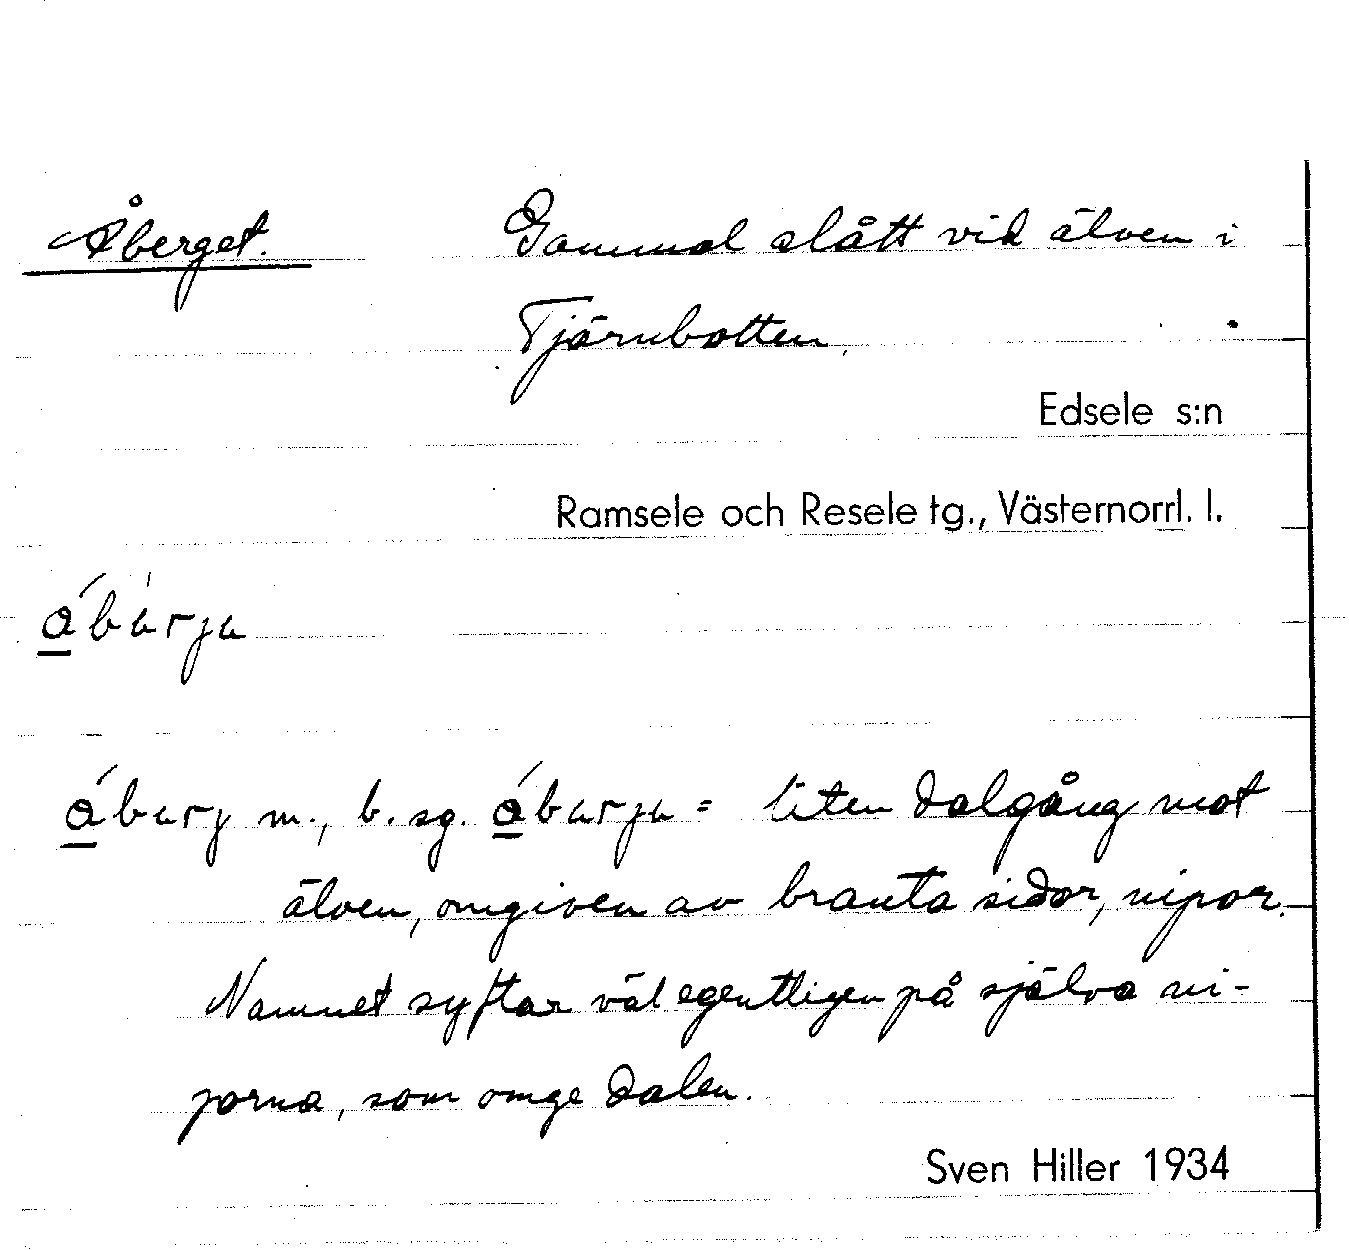 Åberget. Gammal slått vid älven i
Tjärnbotten.
Edsele s:n
Ramsele och Resele tg., Västernorrl. l.
liten dalgång mot
älven, omgiven av branta sidor, nipor.
Namnet syftar väl egentligen på själva ni-
porna, som omge dalen.
Sven Hiller 1934